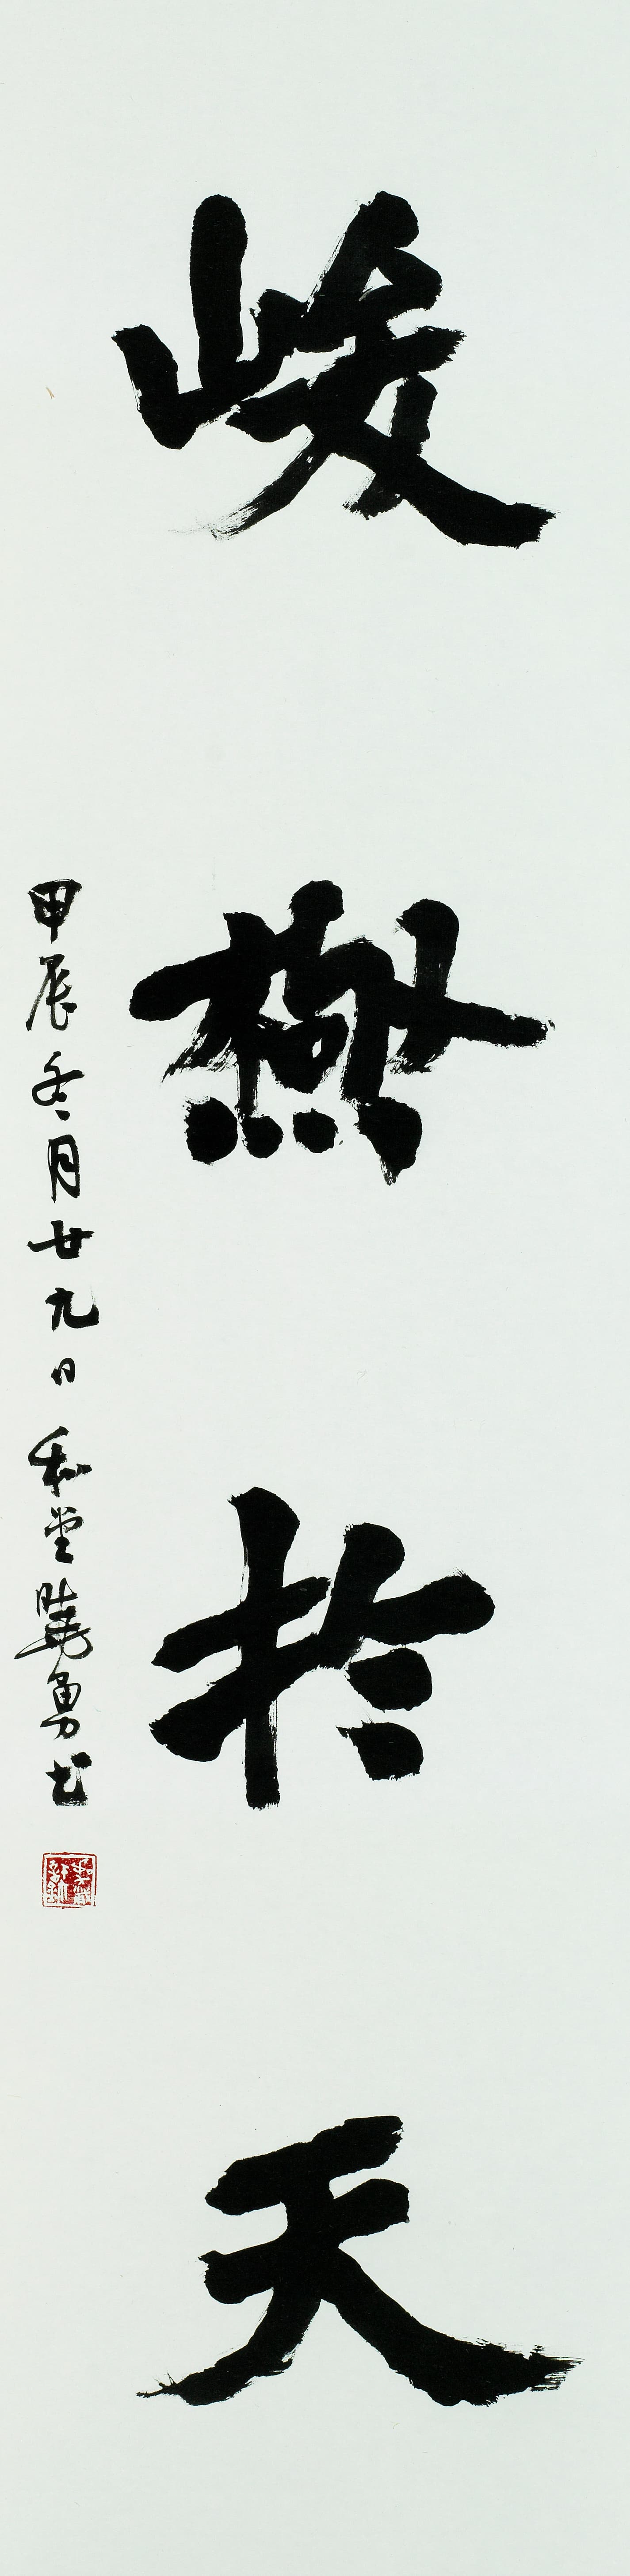 峻極於天
甲辰冬月廿九日 和堂曉勇書